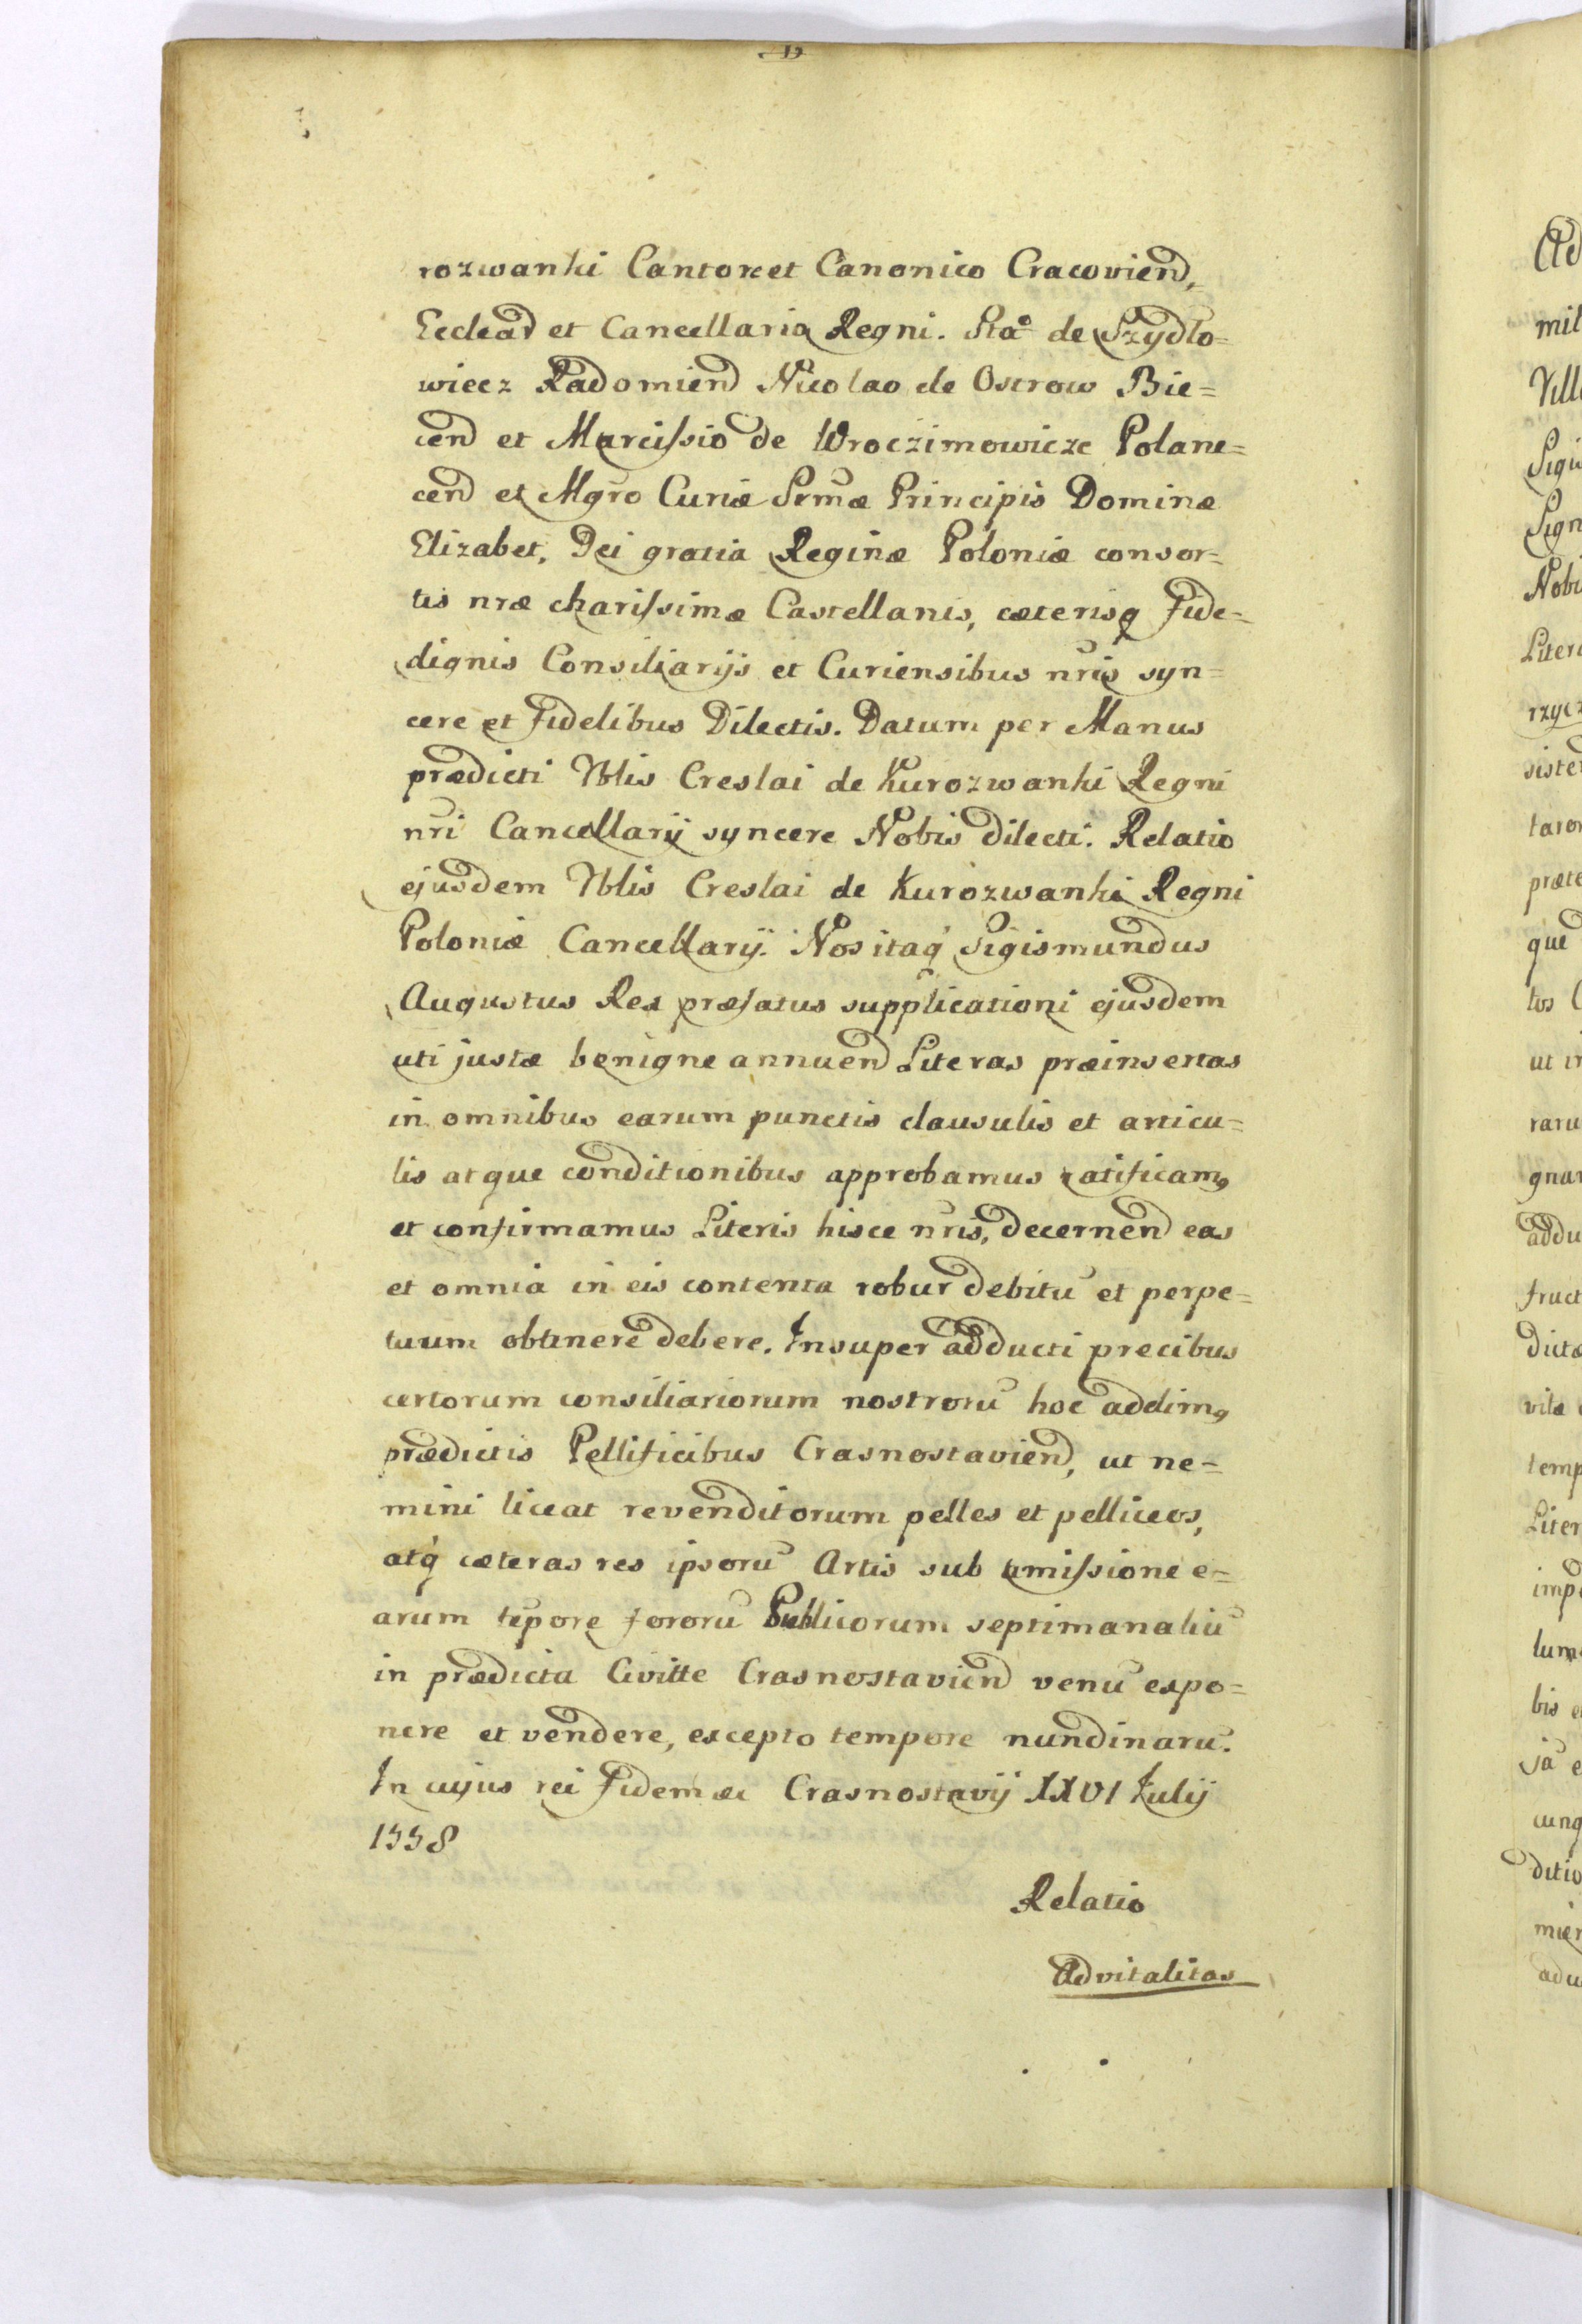 rozwanki Cantore et Canonico Cracovien̄,
Eccleār et Cancellaria Regni. Sta° de Szydło=
wiecz Radomien̄ Nicolao de Ostrow Bie=
cen̄ et Marcissio de Wroczimowicze Polane=
cen̄ et Mgro Curiæ Srmæ Principis Dominæ
Elizabet, Dei gratia Reginæ Poloniæ consor=
tis nræ charissimæ Castellanis, cæterisq̃ fide=
dignis Consiliarijs et Curiensibus nris syn=
cere et fidelibus Dilectis. Datum per Manus
prædicti Nblis Creslai de Kurozwanki Regni
nri Cancellarij syncere Nobis dilecti. Relatio
ejusdem Nblis Creslai de Kurozwanki Regni
Poloniæ Cancellarij. Nos itaq̃ Sigismundus
Augustus Rex præfatus supplicationi ejusdem
uti justæ benigne annuen̄ Literas præinsertas
in omnibus earum punctis clausulis et articu=
lis atque conditionibus approbamus ratificamꝯ
et confirmamus Literis hisce nris, decernen̄ eas
et omnia in eis contenta robur debitū et perpe=
tuum obtinere debere. Insuper adducti precibus
certorum consiliariorum nostrorū hoc addimꝯ
prædictis Pellificibus Crasnostavien̄, ut ne=
mini liceat revenditorum pelles et pelliceos,
atq̃ cæteras res ipsorū Artis sub amissione e=
arum tēpore fororū Publicorum septimanaliū
in prædicta Civitte Crasnostavien̄ venū expo=
nere et vendere, excepto tempore nundinarū.
In cujus rei fidem &c Crasnostavij XXVI Julij
1558
Relatio
Advitalitas